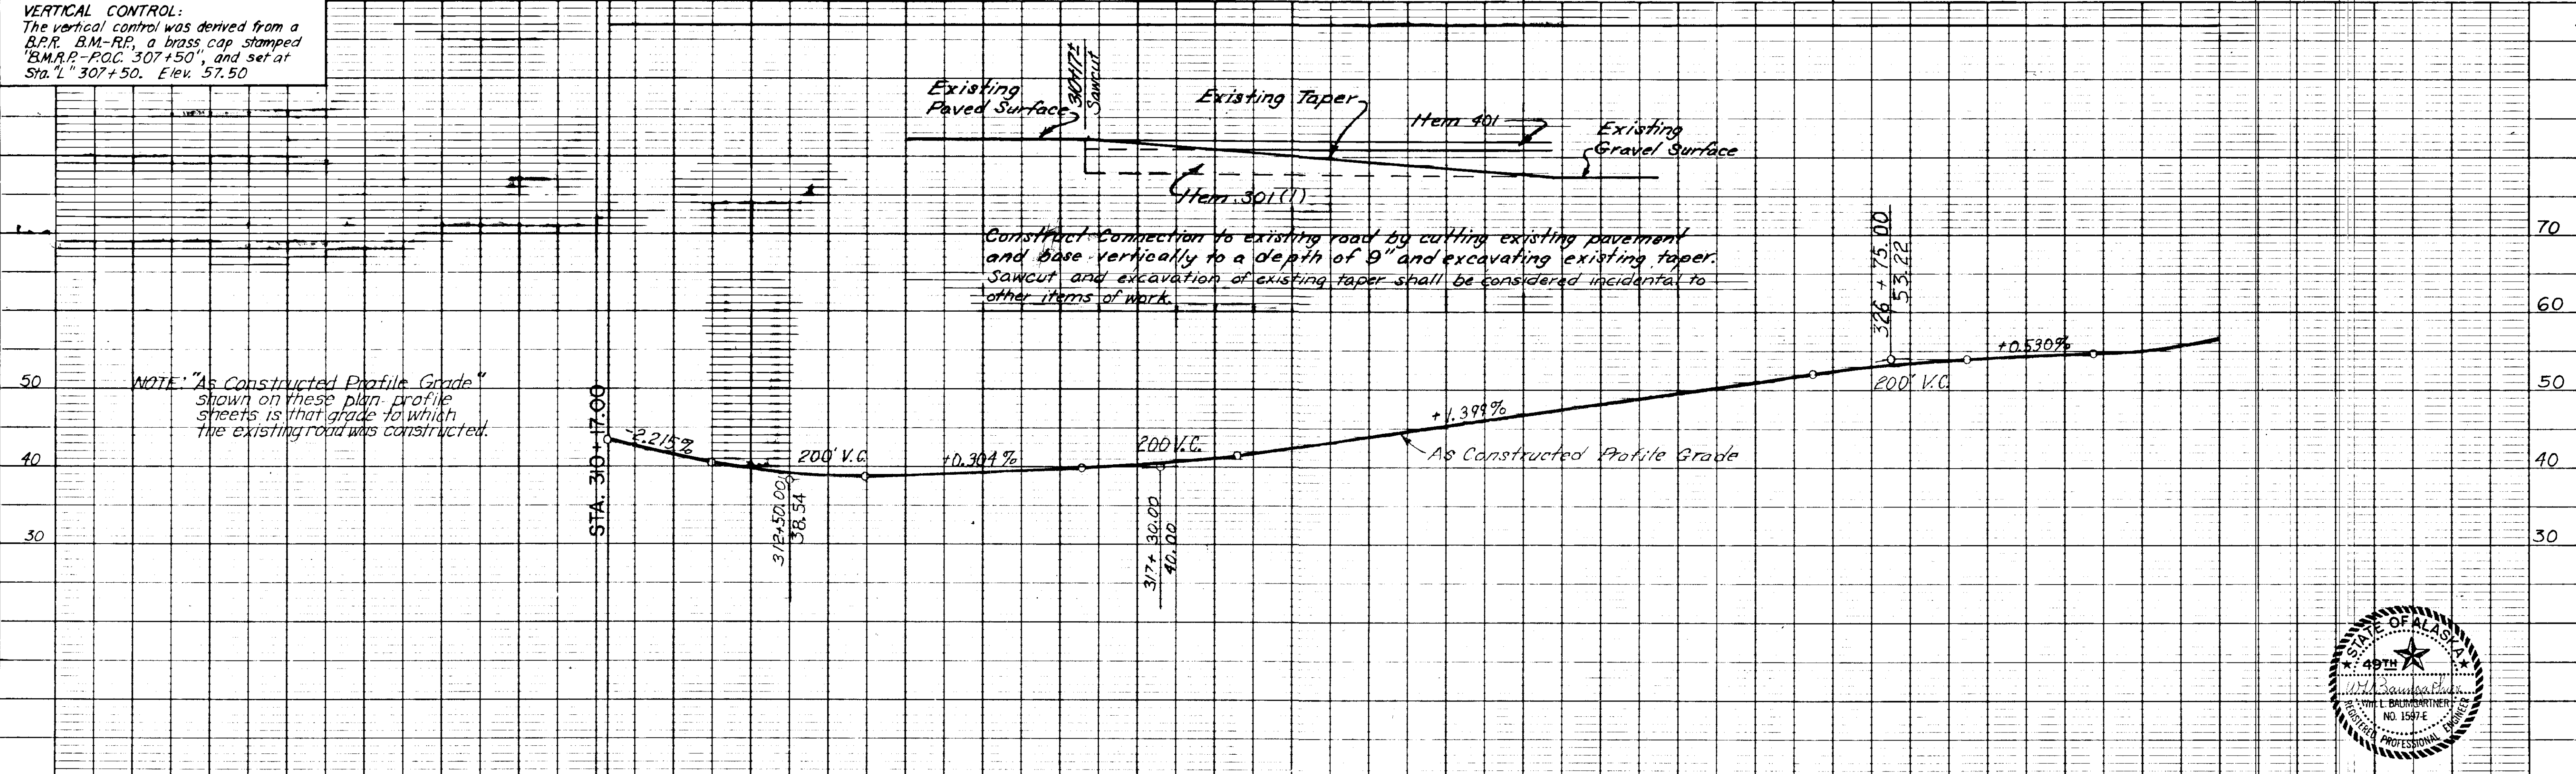 VERTICAL CONTROL:
The vertical control was derived from a
B.P.R. B.M.-R.P., a brass cap stamped
"B.M.R.P.-P.O.C. 307+50", and set at
Sta. "L" 307+50. Elev. 57.50
Existing
Paved Surface
310+17±
Sawcut
Existing Taper
Item 401
Existing
Gravel Surface
Item 301(1)
Construct Connection to existing road by cutting existing pavement
and base vertically to a depth of 9" and excavating existing taper.
Sawcut and excavation of existing taper shall be considered incidental to
other items of work.
70
60
50
40
30
50
40
30
NOTE: "As Constructed Profile Grade"
shown on these plan-profile
sheets is that grade to which
the existing road was constructed.
STA. 310+17.00
-2.215%
200' V.C.
312+50.00
38.54
+0.304%
200' V.C.
317+30.00
40.00
+1.399%
As Constructed Profile Grade
326+75.00
53.22
200' V.C.
+0.530%
STATE OF ALASKA
49TH
Wm. L. BAUMGARTNER
NO. 1597-E
REGISTERED PROFESSIONAL ENGINEER